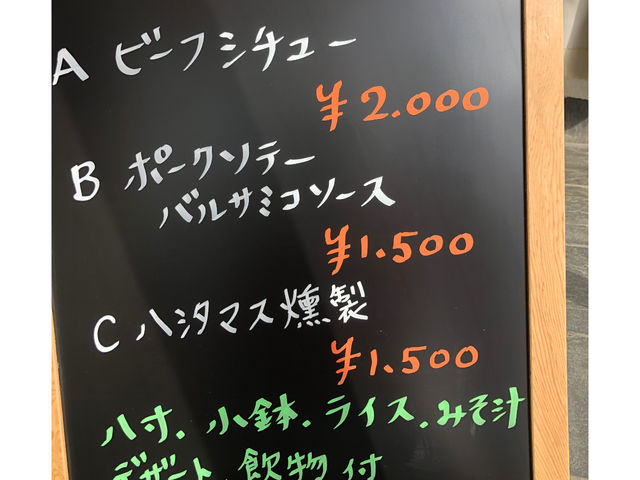 A ビーフシチュー
¥2.000
B ポークソテー
バルサミコソース
¥1.500
C ハシタマス燻製
¥1.500
八寸.小鉢.ライス.みそ汁
デザート.飲物付